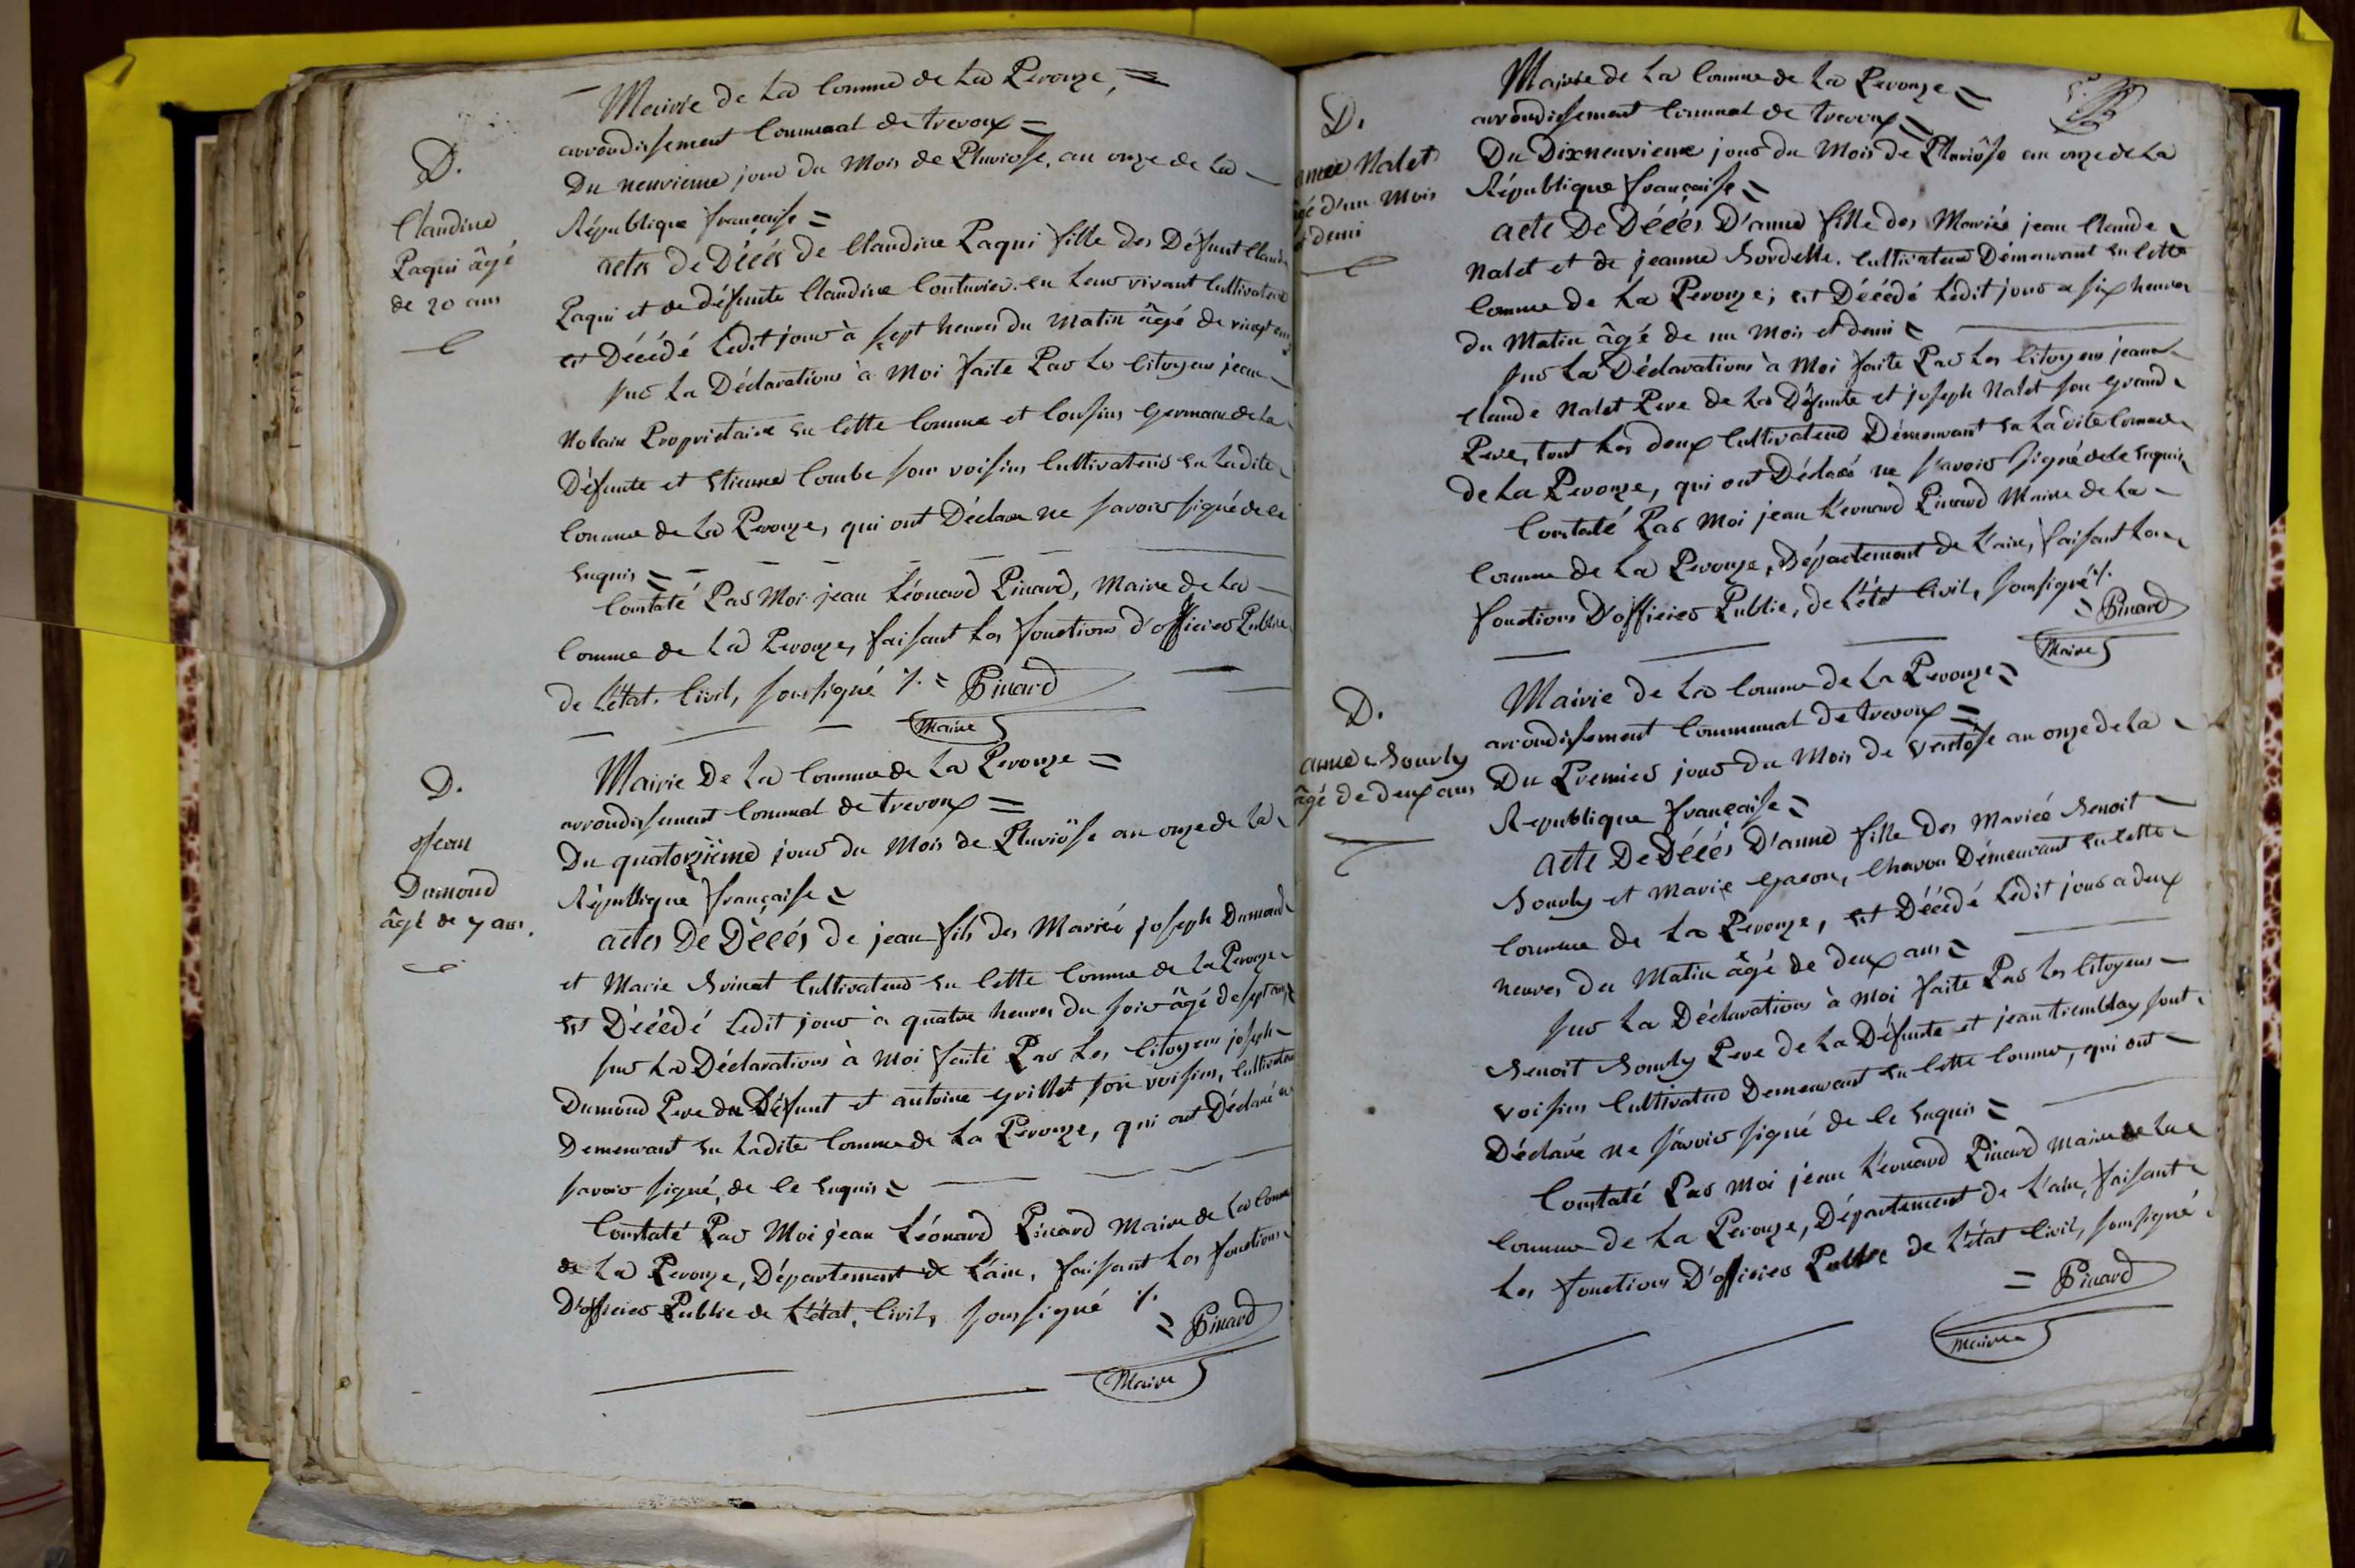 Mairie de La Commune de La Perouze =
arrondissement Communal de trevoux =
D.
Du neuvieme jour du Mois de Pluviosse, an onze de La
Claudine
Paqui âgé
de 20 ans
République française =
actes de Décés de Claudine Paqui fille des Défunt Claude
Paqui et de défunte Claudine Couturier. en Leur vivant Cultivateur
est Décédé Ledit jour à sept heures du Matin âgé de vingt ans
sur La Déclarations à Moi faite Par Les Citoyens jean
Notaire Proprietaire en Cette Commune et Cousins germain de La
Défunte et Etienne Combe son voisins Cultivateurs en Ladite
Commune de La Perouze, qui ont Déclare ne savoir signé de ce
Enquis =
Constaté Par Moi jean Léonard Pinard, Maire de La
Comme de La Perouze, faisant Les fonctions d'officier Public
de L'état. Civil, soussigné ·/. = Pinard
Maire
Mairie De La Commune de La Perouze =
arrondissement Communal de trevoux =
D.
Jean
Dumond
âgé de 7 ans.
Du quatorzième jour du Mois de Pluviôse an onze de La
République française =
actes De Décés de jean fils des Mariéé joseph Dumond
et Marie Cultivateur en Cette Commune de La Perouze
est Décédé Ledit jour à quatre heures du soir âgé de sept ans
sur La Déclarations à Moi faite Par Les Citoyens joseph
Dumond Pere du Défunt et antoine grillet son voisins, Cultivateur
Demeurant en Ladite Commune de La Perouze, qui ont Déclaré ne
savoir signé, de Ce Enquis =
Constaté Par Moi jean Léonard Pinard Maire de La Commune
de La Perouze, Département de L'ain, faisant Les fonctions
D'officier Public de L'état. Civil, soussigné ·/.
= Pinard
Maire
Mairie de La Commune de La Perouze =
arrondissement Communal de trevoux =
D.
Nalet
âgé d'un Mois
et demi
Du Dixneuvieme jour du Mois de Pluviôse an onze de La
République française =
acte De Décés D'anne fille des Mariés jean Claude
Nalet et de jeanne Cultivateur Demeurant en Cette
Comme de La Perouze; est Décédé Ledit jour a six heures
du Matin âgé de un Mois et demi =
sur La Déclarations à Moi faite Par Les Citoyens jean
Claude Nalet Pere de La Défunte et joseph Nalet son grand
Pere, tout Les deux Cultivateur Demeurant en La dite Commune
de La Perouze, qui ont Déclaré ne savoir signé de Ce Enquis
Constaté Par Moi jean Léonard Pinard Maire de La
Commune de La Perouze, Département de L'ain, faisant Les
fonctions D'officier Public, de L'état Civil, soussigné ·/.
= Pinard
Maire
Mairie de La Commune de La Perouze =
arrondissement Communal de trevoux =
D.
anne
âgé de deux ans
Du Premier jour du Mois de Ventôse an onze de La
Republique française =
acte De Décés D'anne fille des Mariéé Benoit
et Marie Demeurant en Cette
Commune de La Perouze, est Décédé Ledit jour a deux
heures du Matin âgé de deux ans =
sur La Déclarations à Moi faite Par Les Citoyens
Benoit Pere de La Défunte et jean tremblay sont
voisins Cultivateur Demeurant en Cette Commune, qui ont
Déclaré ne savoir signé de Ce Enquis =
Constaté Par Moi jean Léonard Pinard Maire de La
Commune de La Perouze, Département de L'ain, faisant
Les fonctions D'officier Public de L'état Civil, soussigné
= Pinard
Maire